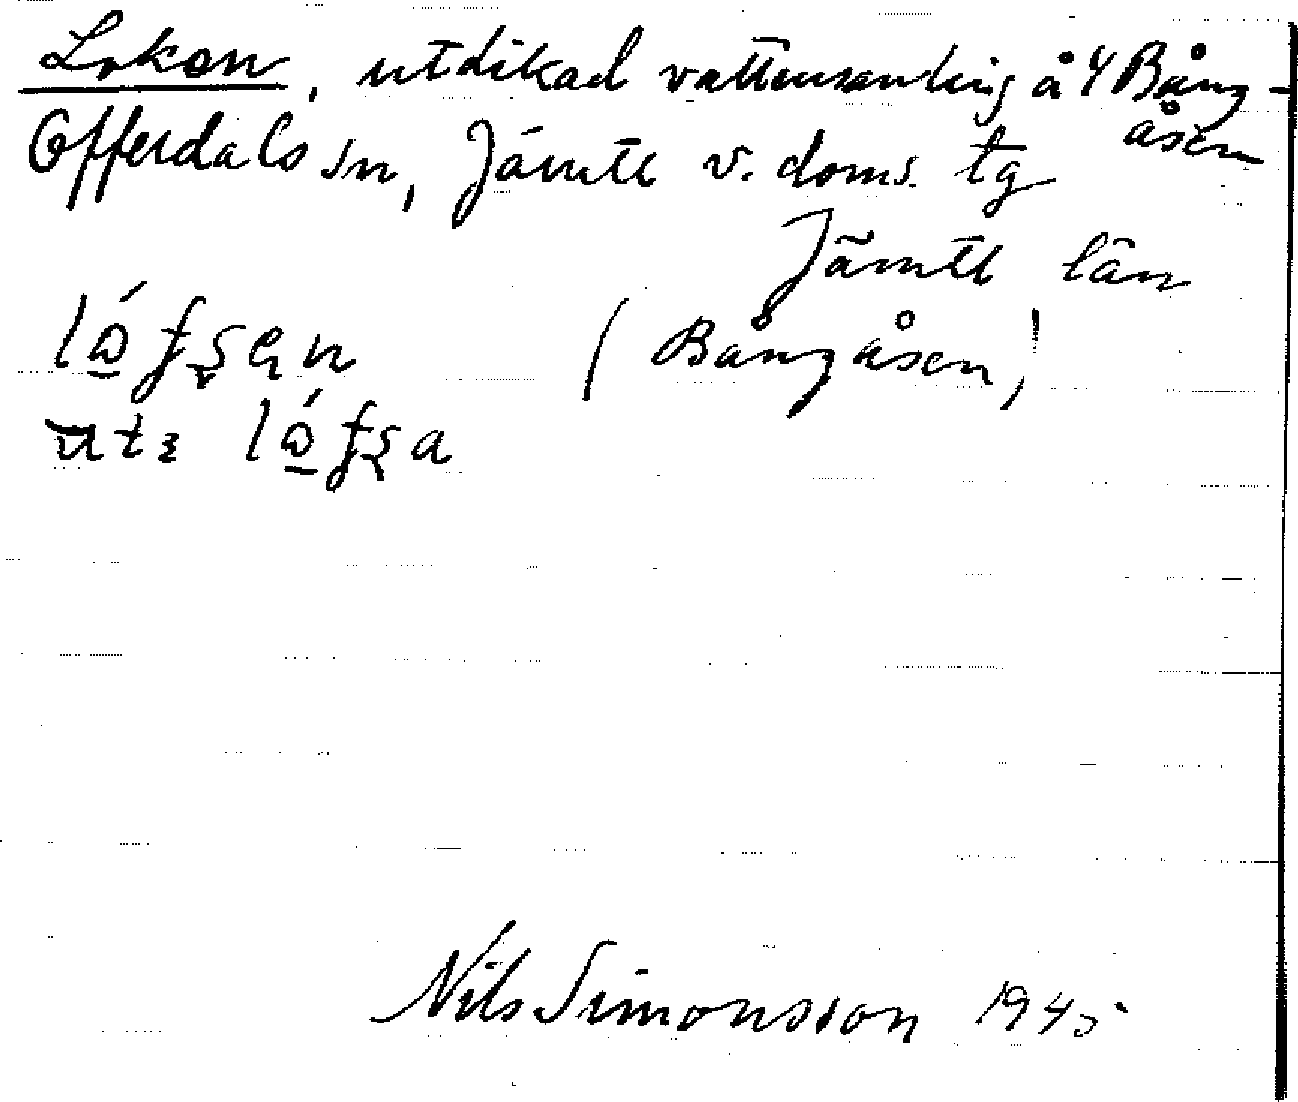 Loken, utdikad vattensamling å 4 Bång-
åsen
Offerdals sn, Jämtl v. doms. tg
Jämtl län
(Bångåsen)
Nils Simonsson 1945